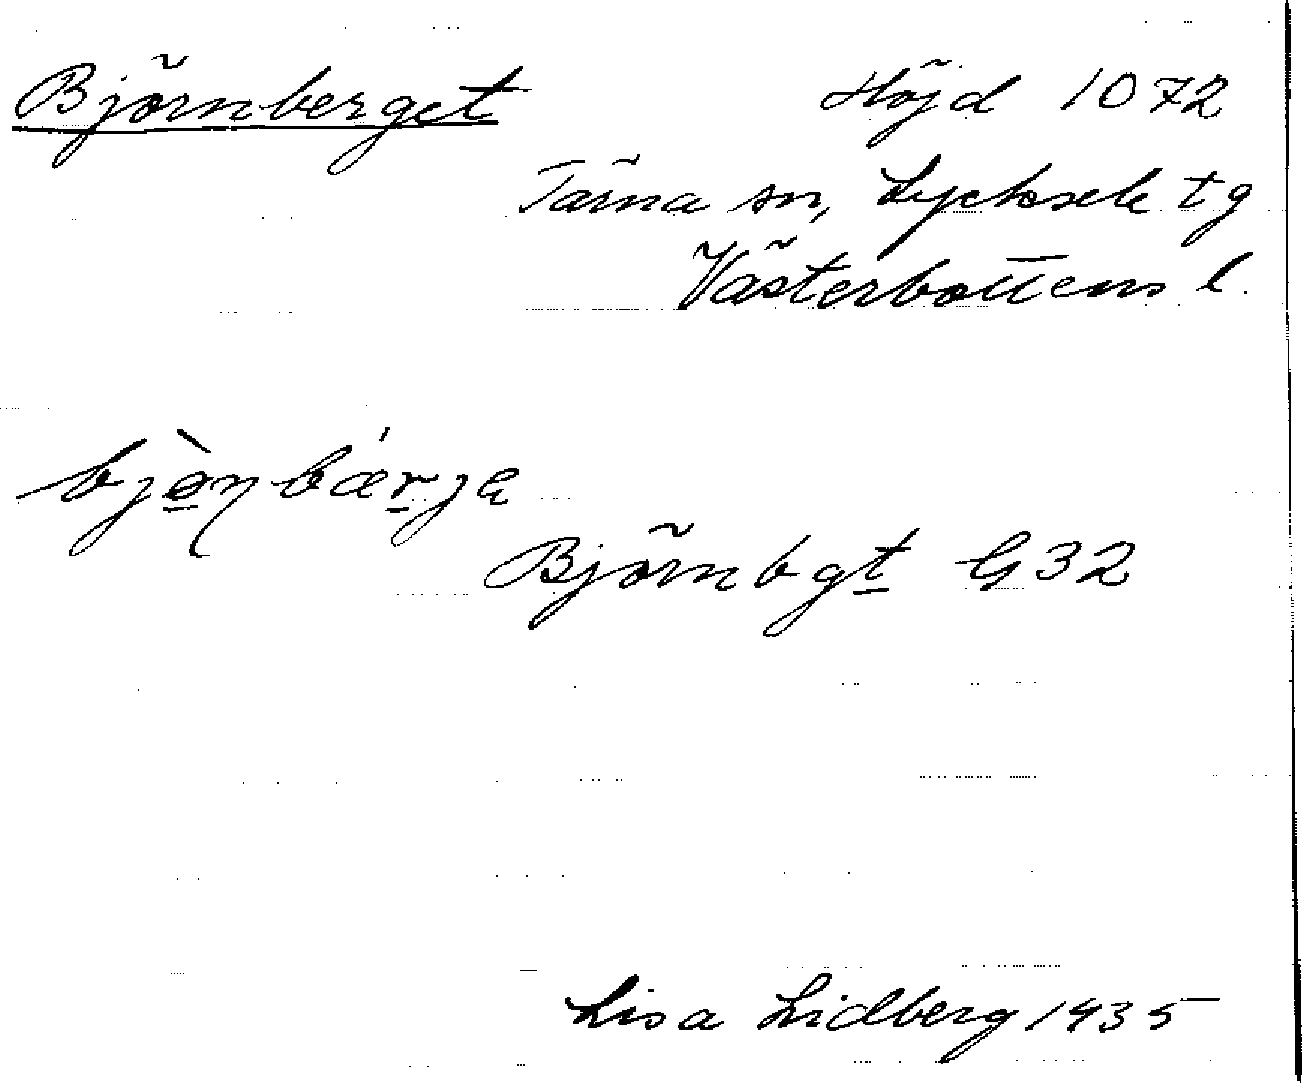 Björnberget Höjd 1072
Tärna sn, Lycksele tg
Västerbottens l.
bjø̀ɳbǽrjɐ
Björnbgt G 32
Lisa Lidberg 1935